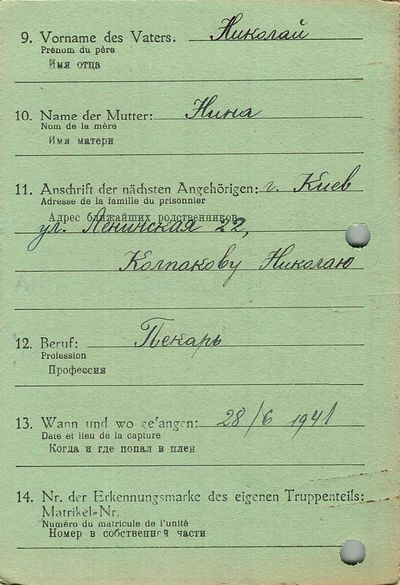 9. Vorname des Vaters. Николай
Prénom du père
Имя отца
10. Name der Mutter: Нина
Nom de la mère
Имя матери
11. Anschrift der nächsten Angehörigen: г. Киев
Adresse de la famille du prisonnier
Адрес ближайших родственников
ул. Ленинская 22,
Колпакову Николаю
12. Beruf: Пекарь
Profession
Профессия
13. Wann und wo gefangen: 28/6 1941
Date et lieu de la capture
Когда и где попал в плен
14. Nr. der Erkennungsmarke des eigenen Truppenteils:
Matrikel=Nr.
Numéro du matricule de l'unité
Номер в собственной части